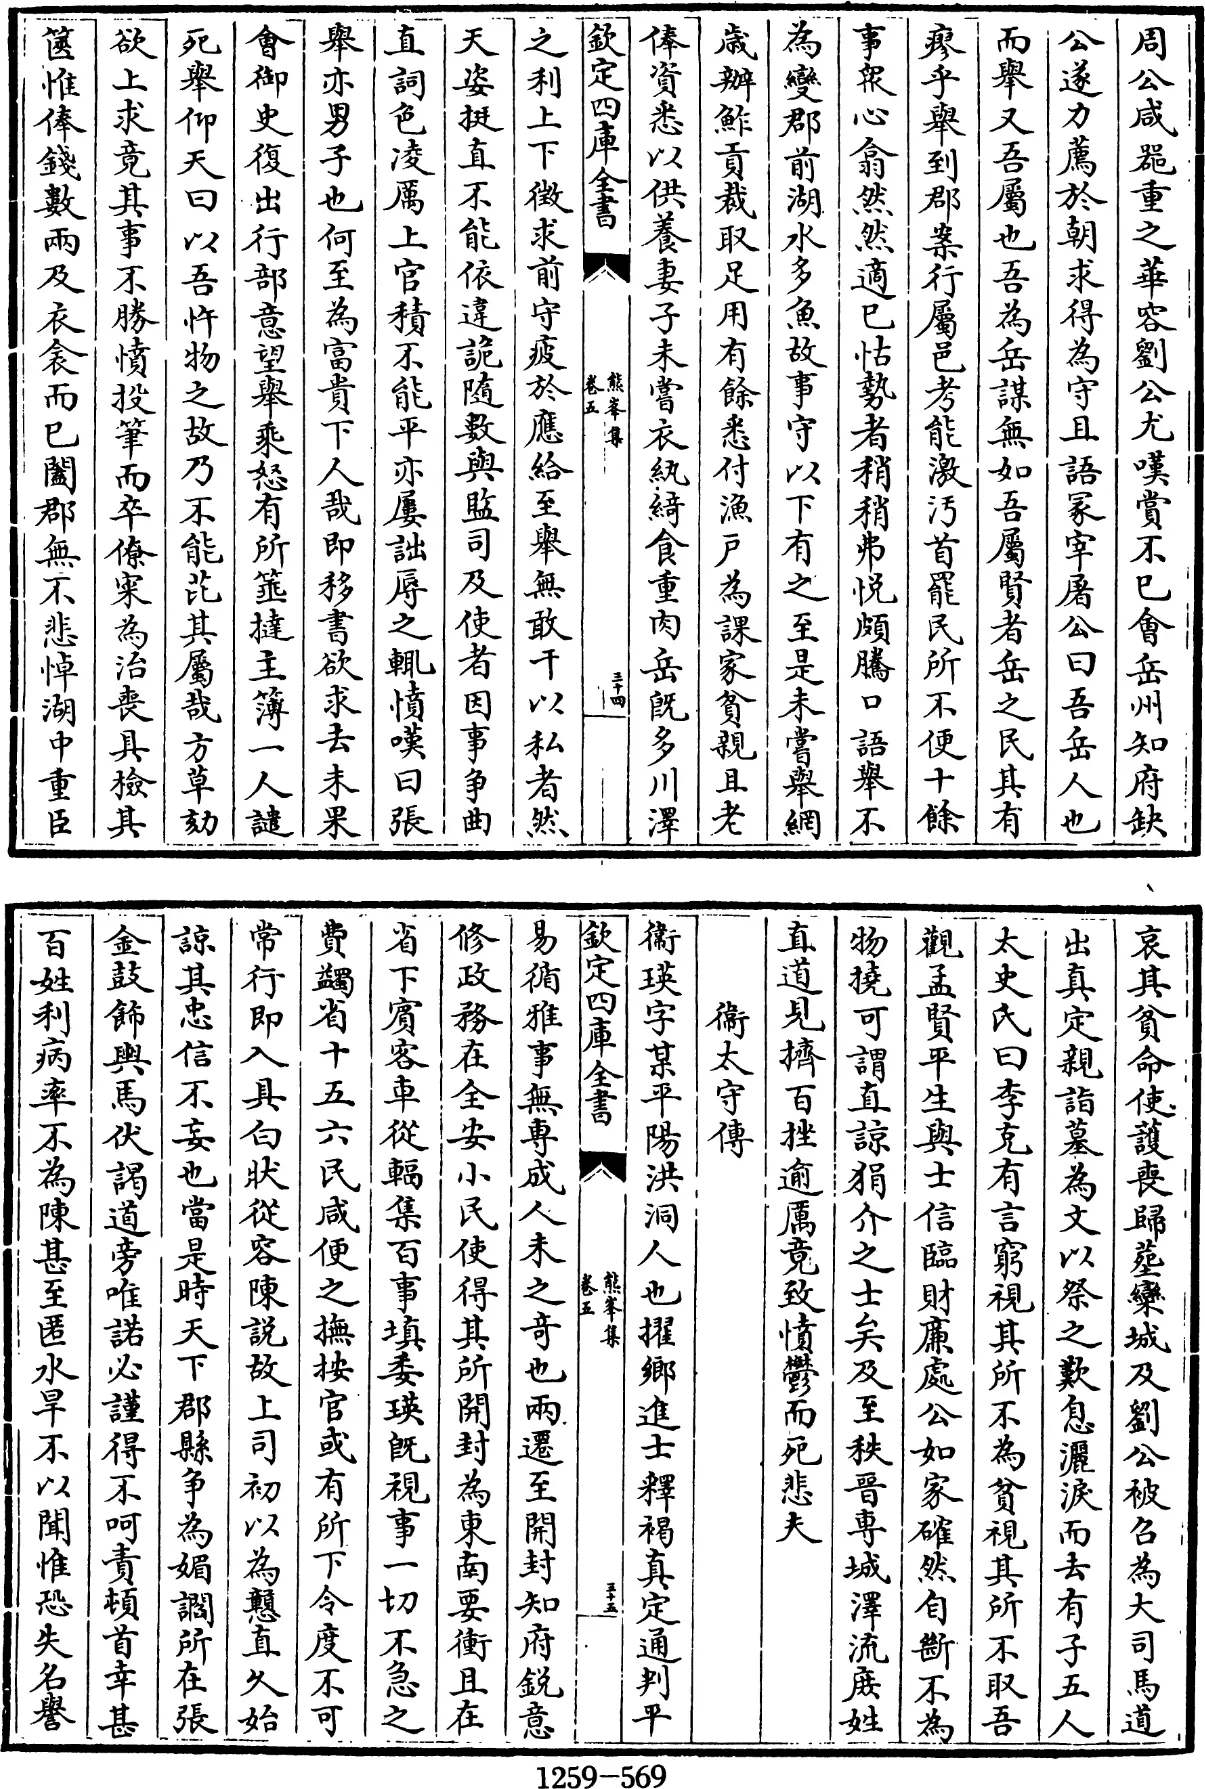 周公咸器重之華容劉公尤嘆賞不已會岳州知府缺
公遂力薦於朝求得為守且語冢宰屠公曰吾岳人也
而舉又吾屬也吾為岳謀無如吾屬賢者岳之民其有
瘳乎舉到郡案行屬邑考能激汚首罷民所不便十餘
事衆心翕然然適已怙勢者稍稍弗悦頗騰口語舉不
為變郡前湖水多魚故事守以下有之至是未嘗舉網
歲辦鮓貢裁取足用有餘悉付漁戸為課家貧親且老
俸資悉以供養妻子未嘗衣紈綺食重肉岳既多川澤
欽定四庫全書
熊峯集
卷五
三十四
之利上下徵求前守疲於應給至舉無敢干以私者然
天姿挺直不能依違詭隨數與監司及使者因事争曲
直詞色凌厲上官積不能平亦屢詘辱之輒憤嘆曰張
舉亦男子也何至為富貴下人哉即移書欲求去未果
會御史復出行部意望舉乘怒有所箠撻主簿一人譴
死舉仰天曰以吾忤物之故乃不能芘其屬哉方草劾
欲上求竟其事不勝憤投筆而卒僚寀為治喪具檢其
篋惟俸錢數兩及衣衾而已闔郡無不悲悼湖中重臣
哀其貧命使護喪歸塟欒城及劉公被召為大司馬道
出真定親詣墓為文以祭之歎息灑淚而去有子五人
太史氏曰李克有言窮視其所不為貧視其所不取吾
觀孟賢平生與士信臨財廉處公如家確然自斷不為
物撓可謂直諒狷介之士矣及至秩晉專城澤流庶姓
直道見擠百挫逾厲竟致憤鬱而死悲夫
衞太守傳
衞瑛字某平陽洪洞人也擢鄉進士釋褐真定通判平
欽定四庫全書
熊峯集
卷五
三十五
易循雅事無專成人未之奇也兩遷至開封知府鋭意
修政務在全安小民使得其所開封為東南要衝且在
省下賓客車從輻集百事填委瑛既視事一切不急之
費蠲省十五六民咸便之撫按官或有所下令度不可
常行即入具白狀從容陳説故上司初以為戇直久始
諒其忠信不妄也當是時天下郡縣争為媚謟所在張
金鼓飾輿馬伏謁道旁唯諾必謹得不呵責頓首幸甚
百姓利病率不為陳甚至匿水旱不以聞惟恐失名譽
1259-569